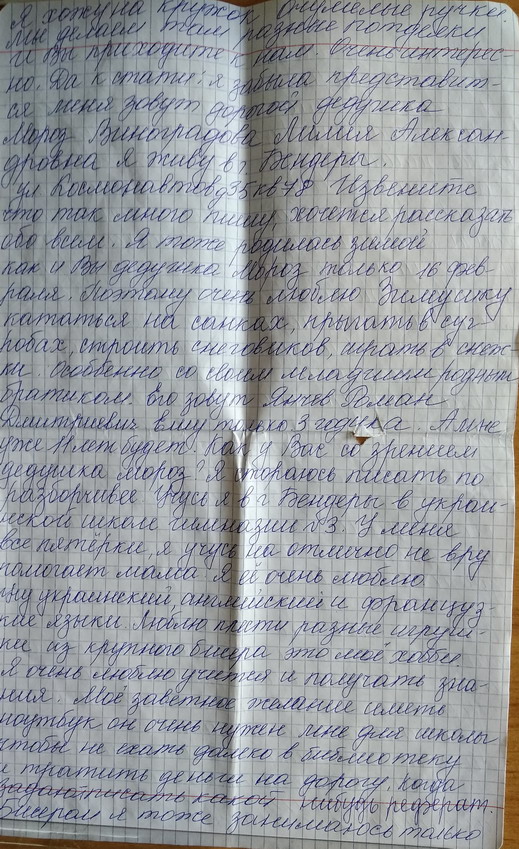 Я хожу на кружок очумелые ручки
Мы делаем там разные поделки
и Вы приходите к нам. Очень интерес-
но. Да кстати: я забыла представит-
ся меня зовут дорогой дедушка
Мороз Виноградова Лилия Алексан-
дровна я живу в г. Бендеры.
ул Космонавтов д 35 кв 78 Извените
что так много пишу, хочется рассказать
обо всем. Я тоже родилась зимой
как и Вы дедушка Мороз только 16 фев-
раля. Поэтому очень люблю Зимушку
кататься на санках, прыгать в суг
робах, строить снеговиков, играть в снеж
ки. Особенно со своим младшим родным
братиком. Его зовут Янчев Роман
Дмитриевич Ему только 3 годика. А мне
уже 11 лет будет. Как у Вас со зрением
дедушка Мороз? Я стораюсь писать по
разборчивее Учусь я в г. Бендеры в украи-
нской школе гимназии №3. У меня
все пятёрки, я учусь на отлично не вру
помогает мама. Я её очень люблю
учу украинский, английский и француз-
кие языки. Люблю плести разные игруш-
ки из крупного бисера это моё хобби.
Я очень люблю учится и получать зна-
ния. Моё заветное желание иметь
ноутбук он очень нужен мне для школы
чтобы не ехать далеко в библиотеку
и тратить деньги на дорогу, когда
писать какой пишущь реферат.
Бисером я тоже занимаюсь только